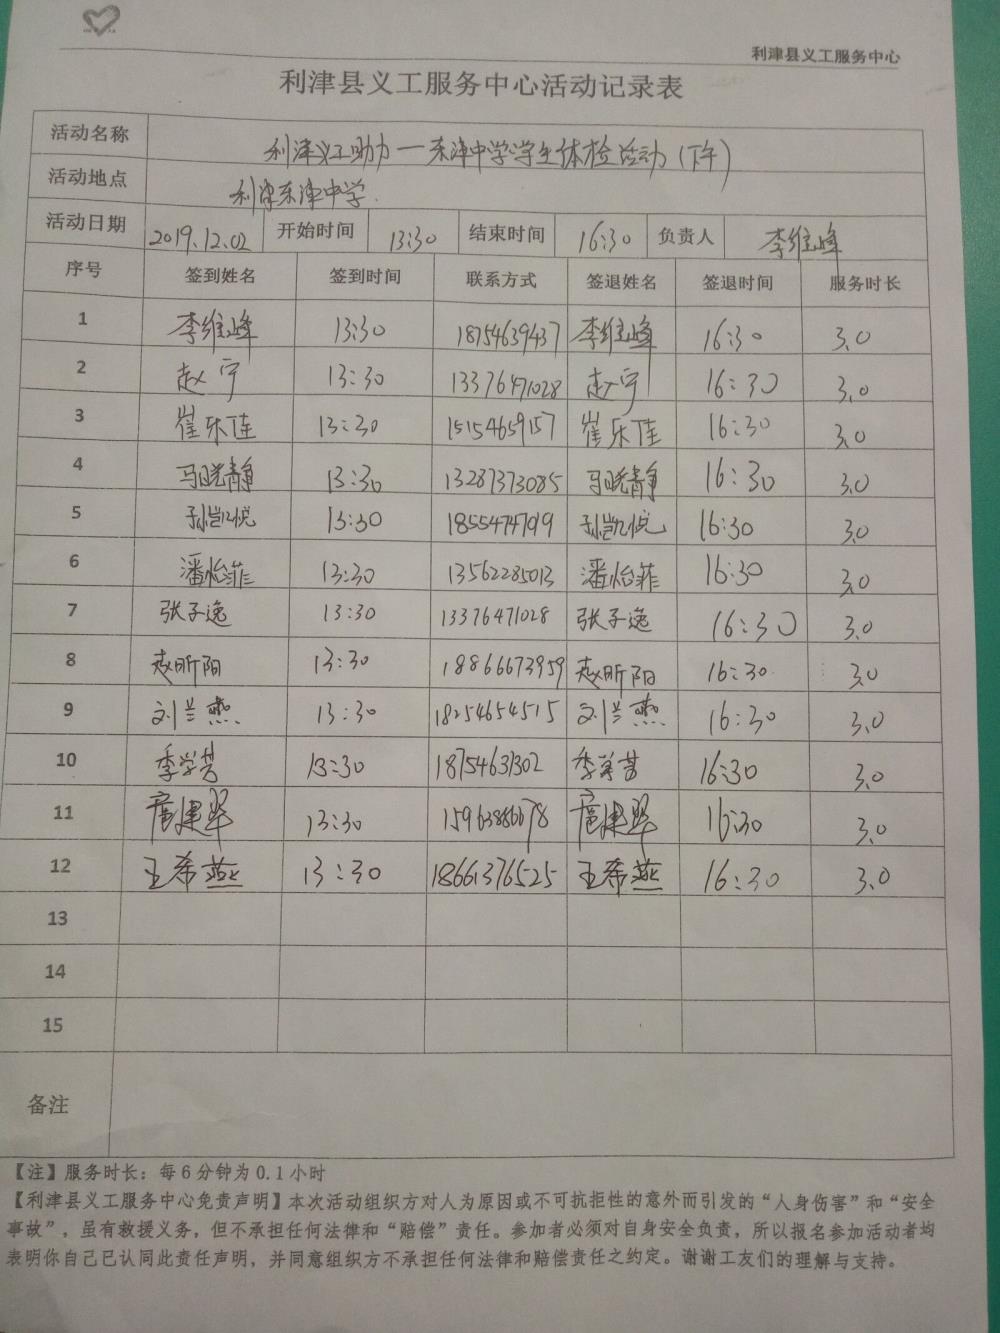 利津县义工服务中心
利津县义工服务中心活动记录表
活动名称 利津义工助力—东津中学学生体检活动(下午)
活动地点 利津东津中学.
活动日期 2019.12.02 开始时间 13:30 结束时间 16:30 负责人 李维峰
序号 签到姓名 签到时间 联系方式 签退姓名 签退时间 服务时长
1 李维峰 13:30 18754639437 李维峰 16:30 3.0
2 赵宁 13:30 13376471028 赵宁 16:30 3.0
3 崔乐佳 13:30 15154659157 崔乐佳 16:30 3.0
4 马晓静 13:30 13287373085 马晓静 16:30 3.0
5 孙恺悦 13:30 孙恺悦 16:30 3.0
6 潘怡菲 13:30 13562285013 潘怡菲 16:30 3.0
7 张子逸 13:30 13376471028 张子逸 16:30 3.0
8 赵昕阳 13:30 18866673959 赵昕阳 16:30 3.0
9 刘兰燕 13:30 18254654515 刘兰燕 16:30 3.0
10 季学芳 13:30 18754631302 季学芳 16:30 3.0
11 扈建翠 13:30 16:30 3.0
12 王希燕 13:30 18661376525 王希燕 16:30 3.0
13
14
15
备注
【注】服务时长：每6分钟为0.1小时
【利津县义工服务中心免责声明】本次活动组织方对人为原因或不可抗拒性的意外而引发的“人身伤害”和“安全
事故”，虽有救援义务，但不承担任何法律和“赔偿”责任。参加者必须对自身安全负责，所以报名参加活动者均
表明你自己已认同此责任声明，并同意组织方不承担任何法律和赔偿责任之约定。谢谢工友们的理解与支持。